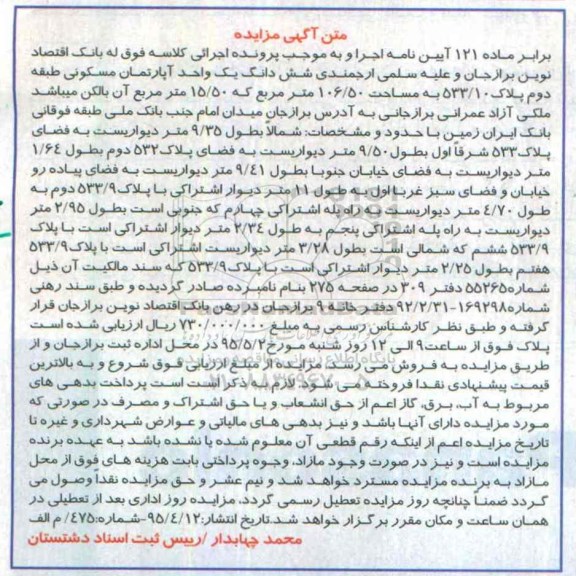 متن آگهی مزایده
برابر ماده ۱۲۱ آیین نامه اجرا و به موجب پرونده اجرائی کلاسه فوق له بانک اقتصاد
نوین برازجان و علیه سلمی ارجمندی شش دانگ یک واحد آپارتمان مسکونی طبقه
دوم پلاک ۵۳۳/۱۰ به مساحت ۱۰۶/۵۰ متر مربع که ۱۵/۵۰ متر مربع آن بالکن میباشد
ملکی آزاد عمرانی برازجانی به آدرس برازجان میدان امام جنب بانک ملی طبقه فوقانی
بانک ایران زمین با حدود و مشخصات: شمالاً بطول ۹/۳۵ متر دیواریست به فضای
پلاک ۵۳۳ شرقاً اول بطول ۹/۵۰ متر دیواریست به فضای پلاک ۵۳۲ دوم بطول ۱/۶۴
متر دیواریست به فضای خیابان جنوبا بطول ۹/۴۱ متر دیواریست به فضای پیاده رو
خیابان و فضای سبز غربا اول به طول ۱۱ متر دیوار اشتراکی با پلاک ۵۳۳/۹ دوم به
طول ۴/۷۰ متر دیواریست به راه پله اشتراکی چهارم که جنوبی است بطول ۲/۹۵ متر
دیواریست به راه پله اشتراکی پنجم به طول ۲/۳۴ متر دیوار اشتراکی است با پلاک
۵۳۳/۹ ششم که شمالی است بطول ۳/۲۸ متر دیواریست اشتراکی است با پلاک ۵۳۳/۹
هفتم بطول ۲/۲۵ متر دیوار اشتراکی است با پلاک ۵۳۳/۹ که سند مالکیت آن ذیل
شماره ۵۵۲۶۵ دفتر ۳۰۹ در صفحه ۲۷۵ بنام نامبرده صادر گردیده و طبق سند رهنی
شماره ۱۶۹۲۹۸-۹۲/۲/۳۱ دفتر خانه ۹ برازجان در رهن بانک اقتصاد نوین برازجان قرار
گرفته و طبق نظر کارشناس رسمی به مبلغ ۷۳۰/۰۰۰/۰۰۰ ریال ارزیابی شده است
پلاک فوق از ساعت ۹ الی ۱۲ روز شنبه مورخ ۹۵/۵/۲ در محل اداره ثبت برازجان و از
طریق مزایده به فروش می رسد. مزایده از مبلغ ارزیابی فوق شروع و به بالاترین
قیمت پیشنهادی نقدا فروخته می شود. لازم به ذکر است است پرداخت بدهی های
مربوط به آب، برق، گاز اعم از حق انشعاب و یا حق اشتراک و مصرف در صورتی که
مورد مزایده دارای آنها باشد و نیز بدهی های مالیاتی و عوارض شهرداری و غیره تا
تاریخ مزایده اعم از اینکه رقم قطعی آن معلوم شده یا نشده باشد به عهده برنده
مزایده است و نیز در صورت وجود مازاد، وجوه پرداختی بابت هزینه های فوق از محل
مازاد به برنده مزایده مسترد خواهد شد و نیم عشر و حق مزایده نقداً وصول می
گردد ضمناً چنانچه روز مزایده تعطیل رسمی گردد، مزایده روز اداری بعد از تعطیلی در
همان ساعت و مکان مقرر برگزار خواهد شد. تاریخ انتشار: ۹۵/۴/۱۲-شماره: ۴۷۵/ م الف
محمد چهابدار /رییس ثبت اسناد دشتستان